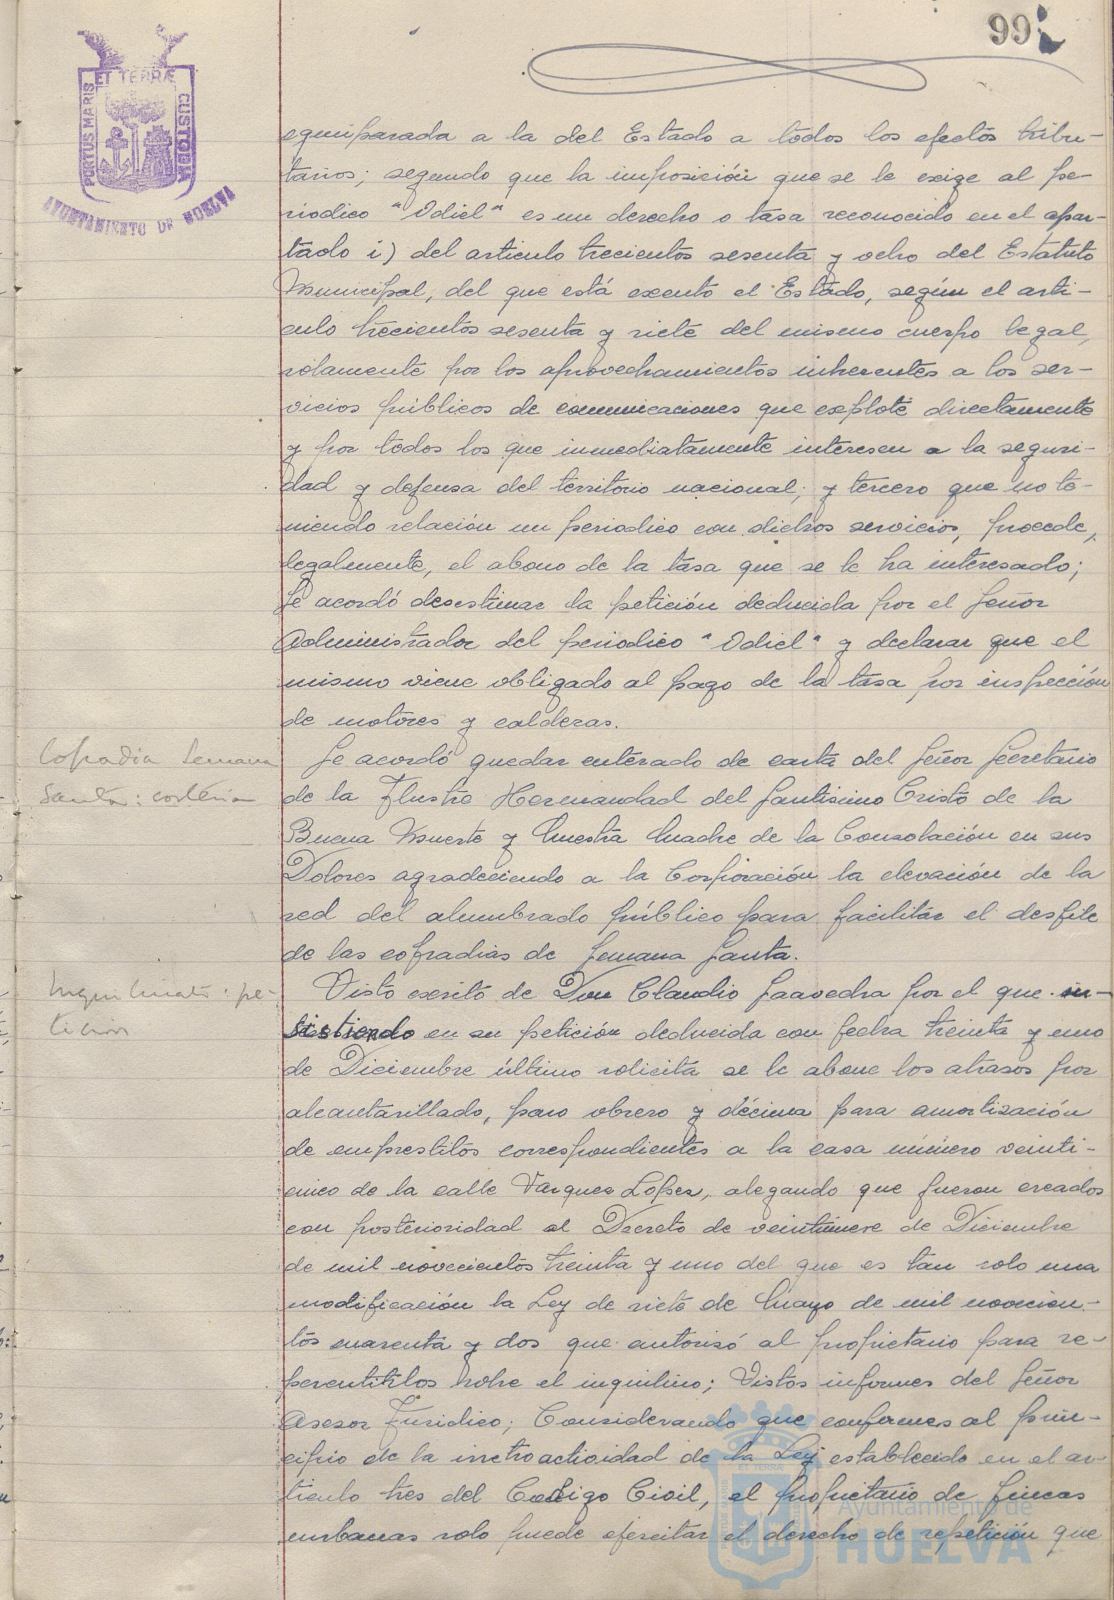 99
PORTUS MARIS ET TERRÆ CUSTODIA
AYUNTAMIENTO DE HUELVA
equiparada a la del Estado a todos los efectos tribu-
tarios; segundo que la imposición que se le exige al pe-
riodico "Odiel" es un derecho o tasa reconocido en el apar-
tado i) del articulo trecientos sesenta y ocho del Estatuto
Municipal, del que está exento el Estado, según el arti-
culo trecientos sesenta y siete del mismo cuerpo legal,
solamente por los aprovechamientos inherentes a los ser-
vicios públicos de comunicaciones que explote directamente
y por todos los que inmediatamente interesen a la seguri-
dad y defensa del territorio nacional; y tercero que no te-
niendo relación un periodico con dichos servicios, procede,
legalmente, el abono de la tasa que se le ha interesado;
Se acordó desestimar la petición deducida por el Señor
Administrador del periodico "Odiel" y declarar que el
mismo viene obligado al pago de la tasa por inspección
de motores y calderas.
Cofradia Semana
Santa:
Se acordó quedar enterado de carta del Señor Secretario
de la Ilustre Hermandad del Santisimo Cristo de la
Buena Muerte y Nuestra Madre de la Consolación en sus
Dolores agradeciendo a la Corporación la elevación de la
red del alumbrado público para facilitar el desfile
de las cofradias de Semana Santa.
Inquilinato: pe-
tición
Visto escrito de Don Claudio Saavedra por el que in-
sistiendo en su petición deducida con fecha treinta y uno
de Diciembre último solicita se le abone los atrasos por
alcantarillado, paro obrero y décima para amortización
de emprestitos correspondientes a la casa número veinti-
cinco de la calle Vazquez Lopez, alegando que fueron creados
con posterioridad al Decreto de veintinueve de Diciembre
de mil novecientos treinta y uno del que es tan solo una
modificación la Ley de siete de Mayo de mil novecien-
tos cuarenta y dos que autorizó al propietario para re-
percutirlos sobre el inquilino; Vistos informes del Señor
Asesor Juridico; Considerando que conforme al prin-
cipio de la irretroactividad de la Ley establecido en el ar-
ticulo tres del Codigo Civil, el propietario de fincas
urbanas solo puede ejercitar el derecho de repetición que
Ayuntamiento de
HUELVA